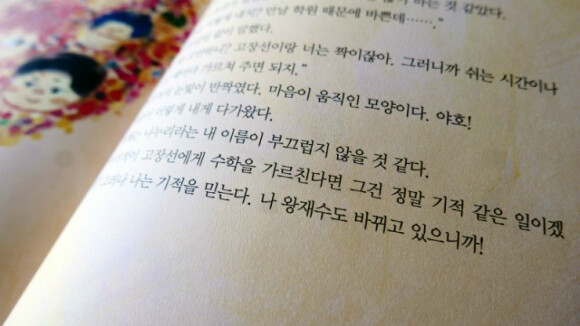 하는 것 같았다.
만날 학원 때문에 바쁜데……."
말했다.
고장선이랑 너는 짝이잖아. 그러니까 쉬는 시간이나
가르쳐 주면 되지."
눈빛이 반짝였다. 마음이 움직인 모양이다. 야호!
이렇게 내게 다가왔다.
나누리라는 내 이름이 부끄럽지 않을 것 같다.
고장선에게 수학을 가르친다면 그건 정말 기적 같은 일이겠
그러나 나는 기적을 믿는다. 나 왕재수도 바뀌고 있으니까!